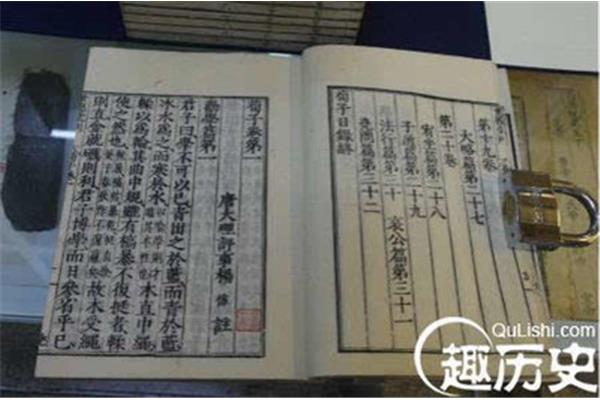 第十九卷
大略篇第二十七
第二十卷
宥坐篇第二十八
子道篇第二十九
法行篇第三十
哀公篇第三十一
堯問篇第三十二
荀子目錄終
荀子卷第一
唐大理評事楊 倞 註
勸學篇第一
君子曰學不可以已青出之於藍而青於藍
冰水為之而寒於水以喻學則才過其本性也木直中繩
輮以為輪其曲中規雖有槁暴不復挺者輮
使之然也故木受繩
則直金就礪則利君子博學而日參省乎己
QuLishi.com
趣历史